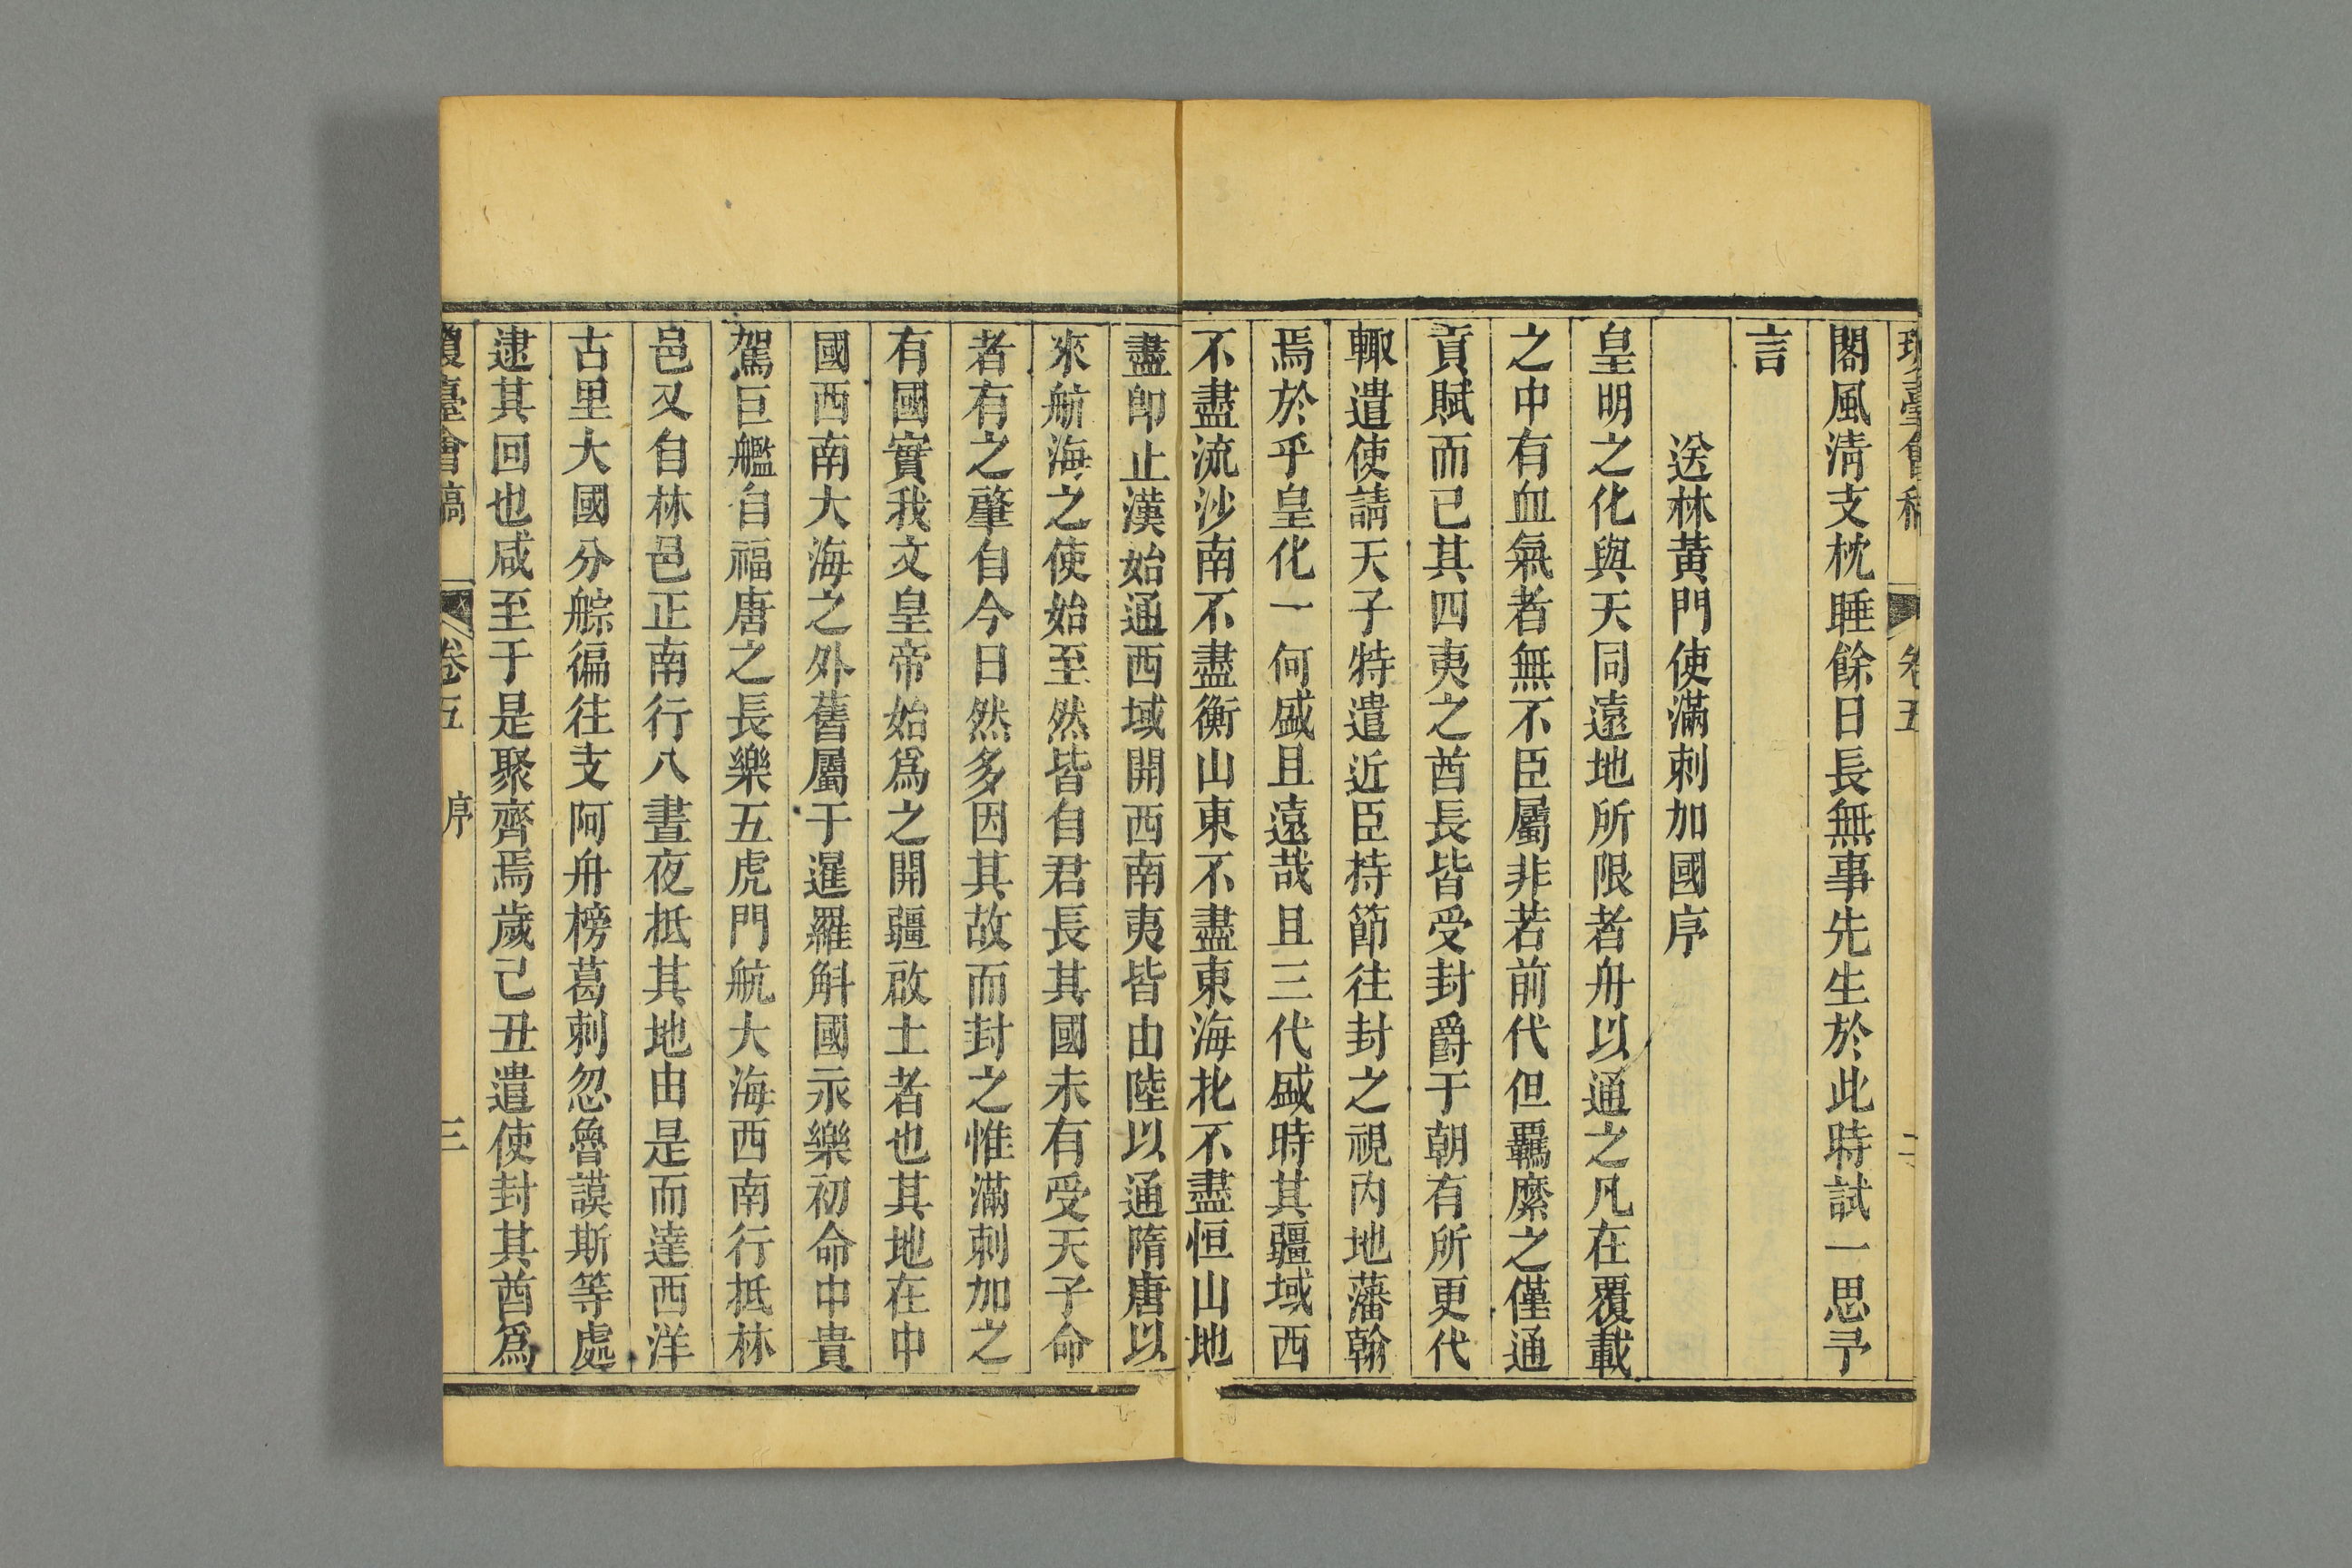 瓊臺會稿 卷五 二
閣風淸支枕睡餘日長無事先生於此時試一思予
言
送林黃門使滿刺加國序
皇明之化與天同遠地所限者舟以通之凡在覆載
之中有血氣者無不臣屬非若前代但羈縻之僅通
貢賦而已其四夷之酋長皆受封爵于朝有所更代
輙遣使請天子特遣近臣持節往封之視内地藩翰
焉於乎皇化一何盛且遠哉且三代盛時其疆域西
不盡流沙南不盡衡山東不盡東海北不盡恒山地
盡卽止漢始通西域開西南夷皆由陸以通隋唐以
來航海之使始至然皆自君長其國未有受天子命
者有之肇自今日然多因其故而封之惟滿刺加之
有國實我文皇帝始爲之開疆啟土者也其地在中
國西南大海之外舊屬于暹羅斛國永樂初命中貴
駕巨艦自福唐之長樂五虎門航大海西南行抵林
邑又自林邑正南行八晝夜抵其地由是而達西洋
古里大國分䑸徧往支阿舟榜葛刺忽魯謨斯等處
逮其回也咸至于是聚齊焉歲己丑遣使封其酋爲
瓊臺會稿 卷五 序 三